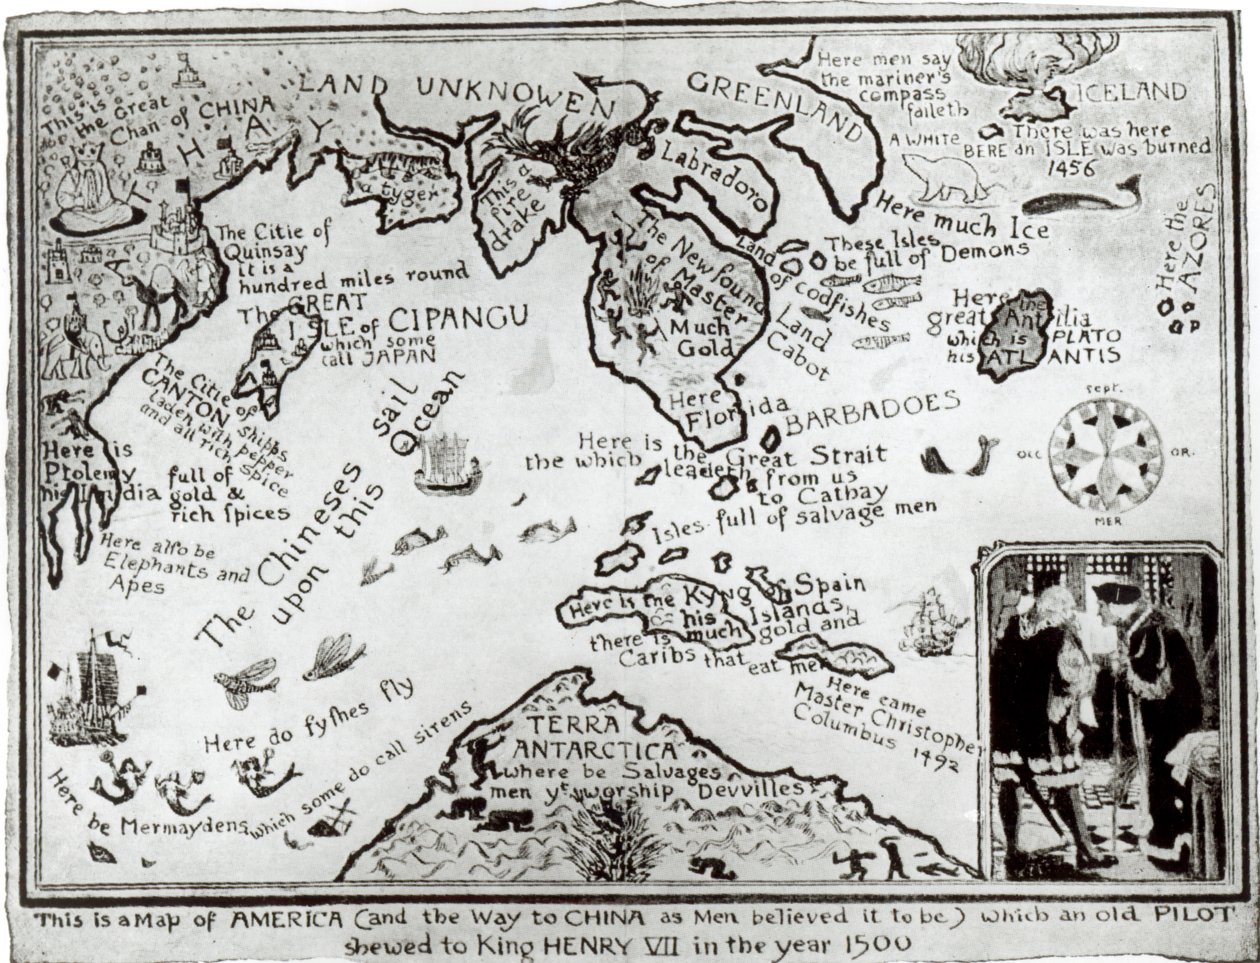 LAND UNKNOWEN
GREENLAND
Here men say
the mariner's
compass
faileth
ICELAND
There was here
an ISLE was burned
1456
A WHITE
BERE
This is
the Great
Chan of CHINA
HAY
a tyger
This a
fire
drake
Labradoro
Here much Ice
Here the
AZORES
The Citie of
Quinsay
it is a
hundred miles round
The GREAT
ISLE of CIPANGU
which some
call JAPAN
The Newfound
of Master
Much
Gold
Land of codfishes
Land
Cabot
These Isles
be full of Demons
Here the
great Antilia
which is PLATO
his ATLANTIS
The Citie of
CANTON Shipps
Laden with pepper
and all rich Spice
Here
Florida
BARBADOES
sept.
OCC
OR.
MER
Here is
Ptolemy
his India
full of
gold &
rich spices
Here also be
Elephants and
Apes
The Chineses sail
upon this Ocean
Here is the Great Strait
the which leadeth from us
to Cathay
Isles full of salvage men
Here is the Kyng of Spain
his Islands,
there is much gold and
Caribs that eat men
Here came
Master Christopher
Columbus 1492
Here do fyshes fly
Here be Mermaydens which some do call sirens
TERRA
ANTARCTICA
where be Salvages
men yt worship Devvilles
This is a Map of AMERICA (and the Way to CHINA as Men believed it to be) which an old PILOT
shewed to King HENRY VII in the year 1500